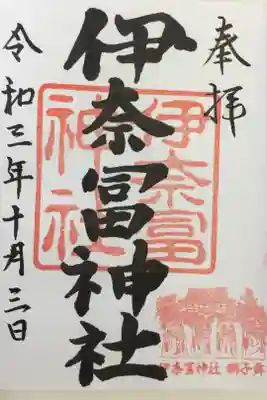 奉拝
伊奈冨神社
伊奈冨神社
令和三年十月三日
伊奈冨神社 獅子舞